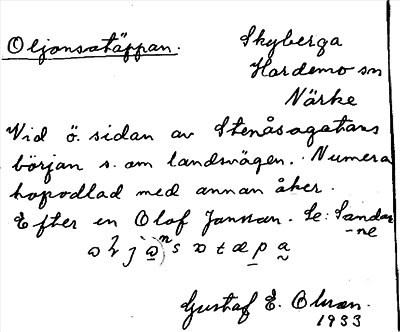 Oljonsatäppan. Skyberga
Hardemo sn
Närke
Vid ö. sidan av Stenåsagatans
början s. om landsvägen. Numera
hopodlad med annan åker.
Efter en Olof Jansson. Se: Sandar
-ne
Gustaf E. Olsson.
1933